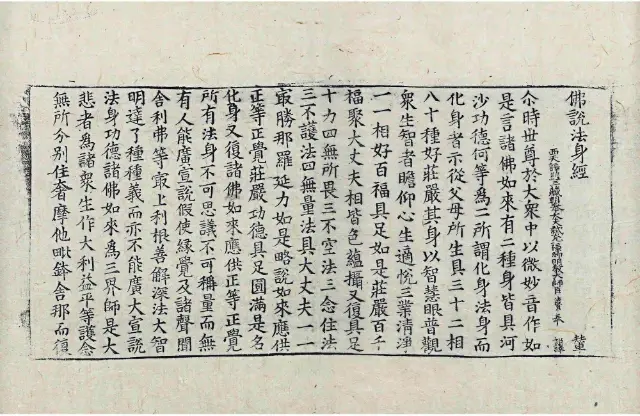 佛說法身經 輦
西天譯經三藏朝奉大夫試光祿卿明教大師臣法賢奉 詔譯
尒時世尊於大衆中以微妙音作如
是言諸佛如來有二種身皆具河
沙功德何等爲二所謂化身法身而
化身者示從父母所生具三十二相
八十種好莊嚴其身以智慧眼普觀
衆生智者瞻仰心生適悅三業清淨
一一相好百福具足如是莊嚴百千
福聚大丈夫相皆色蘊攝又復具足
十力四無所畏三不空法三念住法
三不護法四無量法具大丈夫一一
㝡勝那羅延力如是略說如來應供
正等正覺莊嚴功德具足圓滿是名
化身又復諸佛如來應供正等正覺
所有法身不可思議不可稱量而無
有人能廣宣說假使緣覺及諸聲聞
舍利弗等㝡上利根善解深法大智
明達了種種義而亦不能廣大宣說
法身功德諸佛如來爲三界師是大
悲者爲諸衆生作大利益平等護念
無所分別住奢摩他毗鉢舍那而復